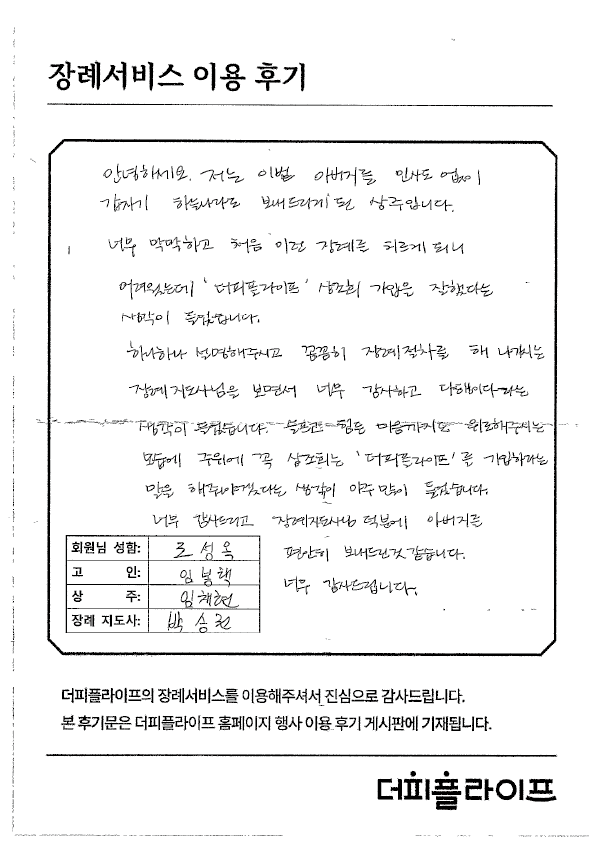 장례서비스 이용 후기
안녕하세요. 저는 이번 아버지를 인사도 없이
갑자기 하늘나라로 보내드리게 된 상주입니다.
너무 막막하고 처음 이런 장례를 치르게 되니
어려웠는데 '더피플라이프' 상조회 가입은 잘했다는
생각이 들었습니다.
하나하나 설명해주시고 꼼꼼히 장례절차를 해 나가시는
장례지도사님을 보면서 너무 감사하고 다행이다라는
생각이 들었습니다. 슬프고 힘든 마음까지도 위로해주시는
모습에 주위에 꼭 상조회는 '더피플라이프'를 가입하라는
말을 해주어야겠다는 생각이 아주 많이 들었습니다.
너무 감사드리고 장례지도사님 덕분에 아버지를
편안히 보내드린것 같습니다.
너무 감사드립니다.
회원님 성함: 성옥
고 인: 임봉택
상 주: 임채현
장례 지도사: 박승권
더피플라이프의 장례서비스를 이용해주셔서 진심으로 감사드립니다.
본 후기문은 더피플라이프 홈페이지 행사 이용 후기 게시판에 기재됩니다.
더피플라이프